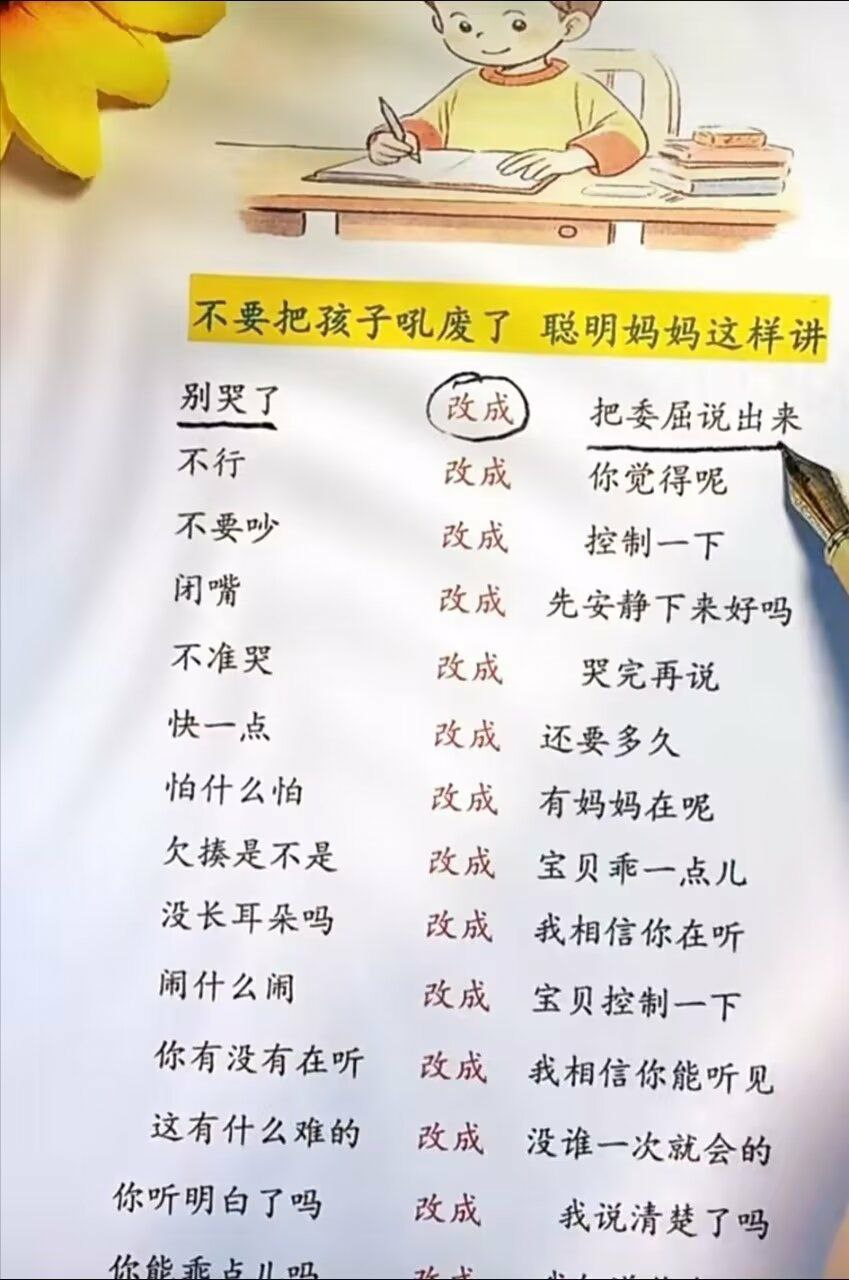 不要把孩子吼废了 聪明妈妈这样讲
别哭了 改成 把委屈说出来
不行 改成 你觉得呢
不要吵 改成 控制一下
闭嘴 改成 先安静下来好吗
不准哭 改成 哭完再说
快一点 改成 还要多久
怕什么怕 改成 有妈妈在呢
欠揍是不是 改成 宝贝乖一点儿
没长耳朵吗 改成 我相信你在听
闹什么闹 改成 宝贝控制一下
你有没有在听 改成 我相信你能听见
这有什么难的 改成 没谁一次就会的
你听明白了吗 改成 我说清楚了吗
你能乖点儿吗 改成